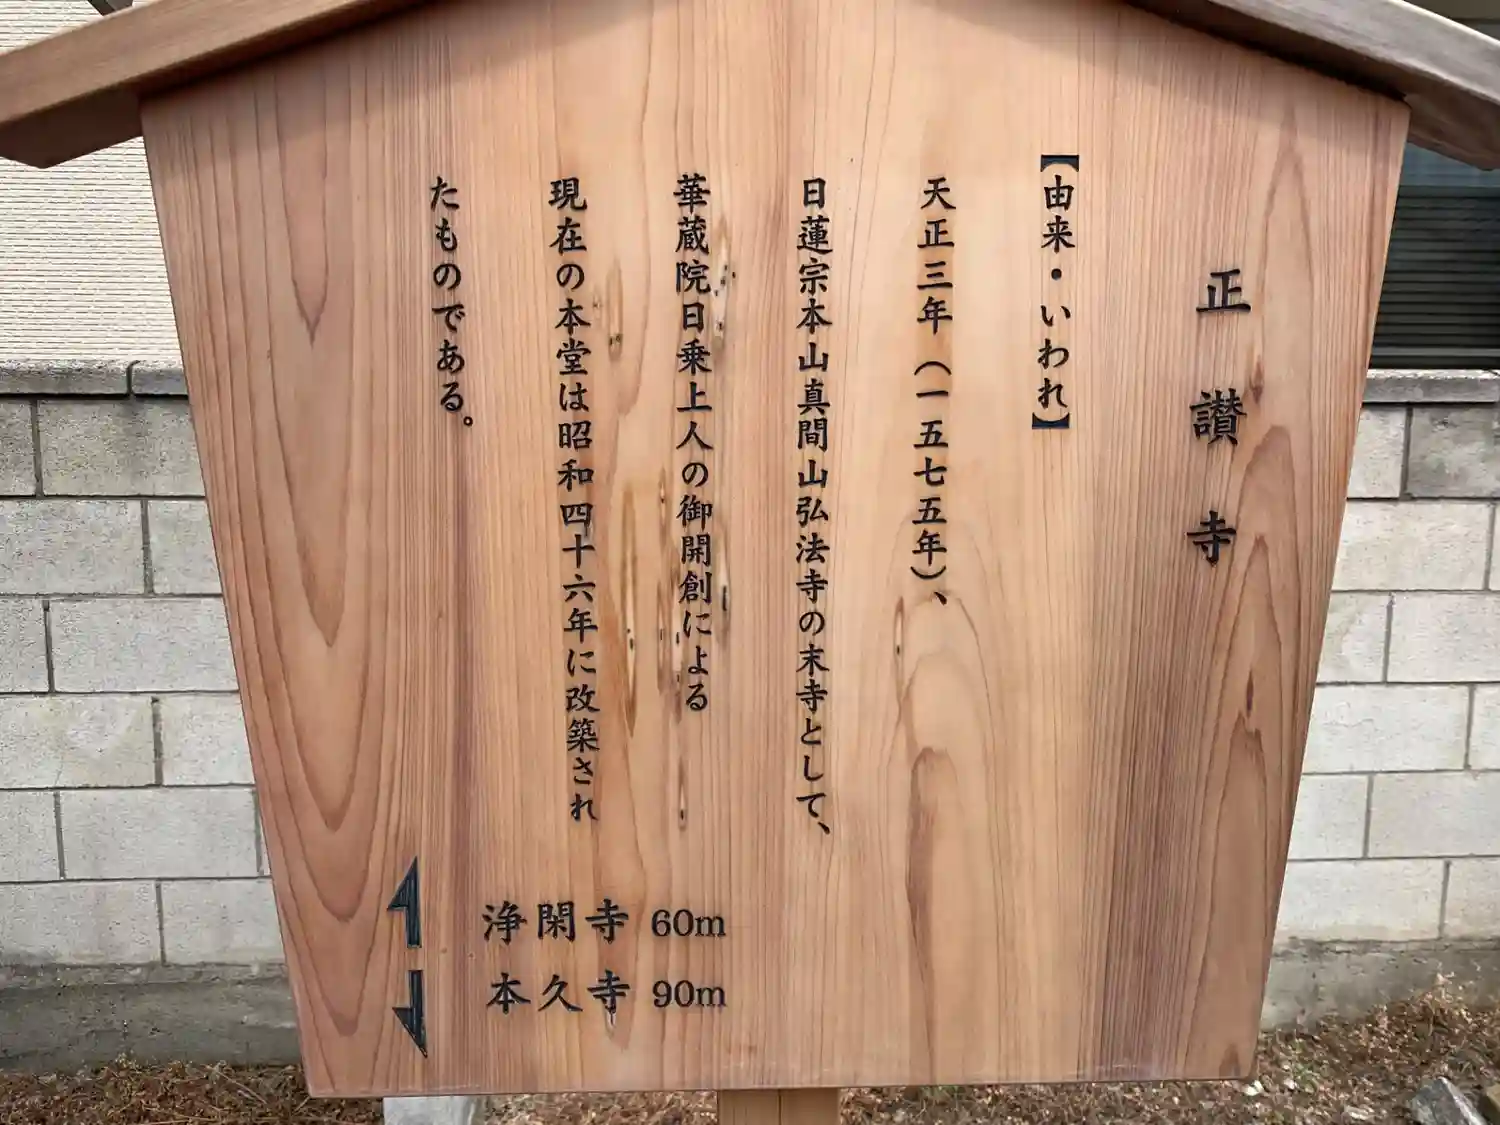 正讃寺
【由来・いわれ】
天正三年（一五七五年）、
日蓮宗本山真間山弘法寺の末寺として、
華蔵院日乗上人の御開創による
現在の本堂は昭和四十六年に改築され
たものである。
浄閑寺 60m
本久寺 90m